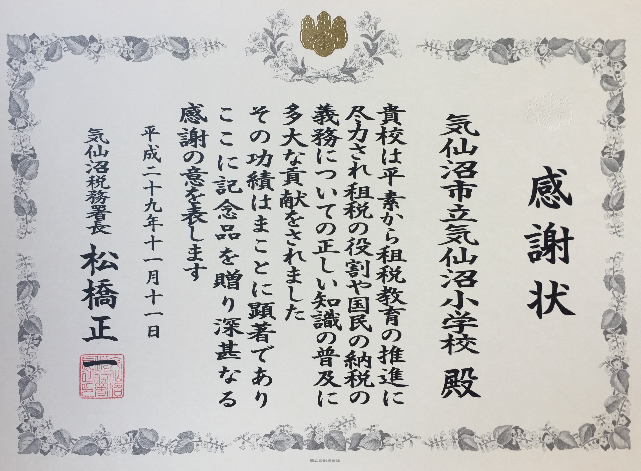 感謝状
気仙沼市立気仙沼小学校 殿
貴校は平素から租税教育の推進に
尽力され租税の役割や国民の納税の
義務についての正しい知識の普及に
多大な貢献をされました
その功績はまことに顕著であり
ここに記念品を贈り深甚なる
感謝の意を表します
平成二十九年十一月十一日
気仙沼税務署長 松橋正一